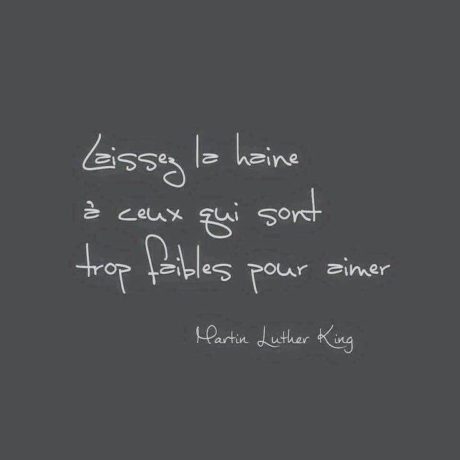 Laissez la haine
à ceux qui sont
trop faibles pour aimer
Martin Luther King